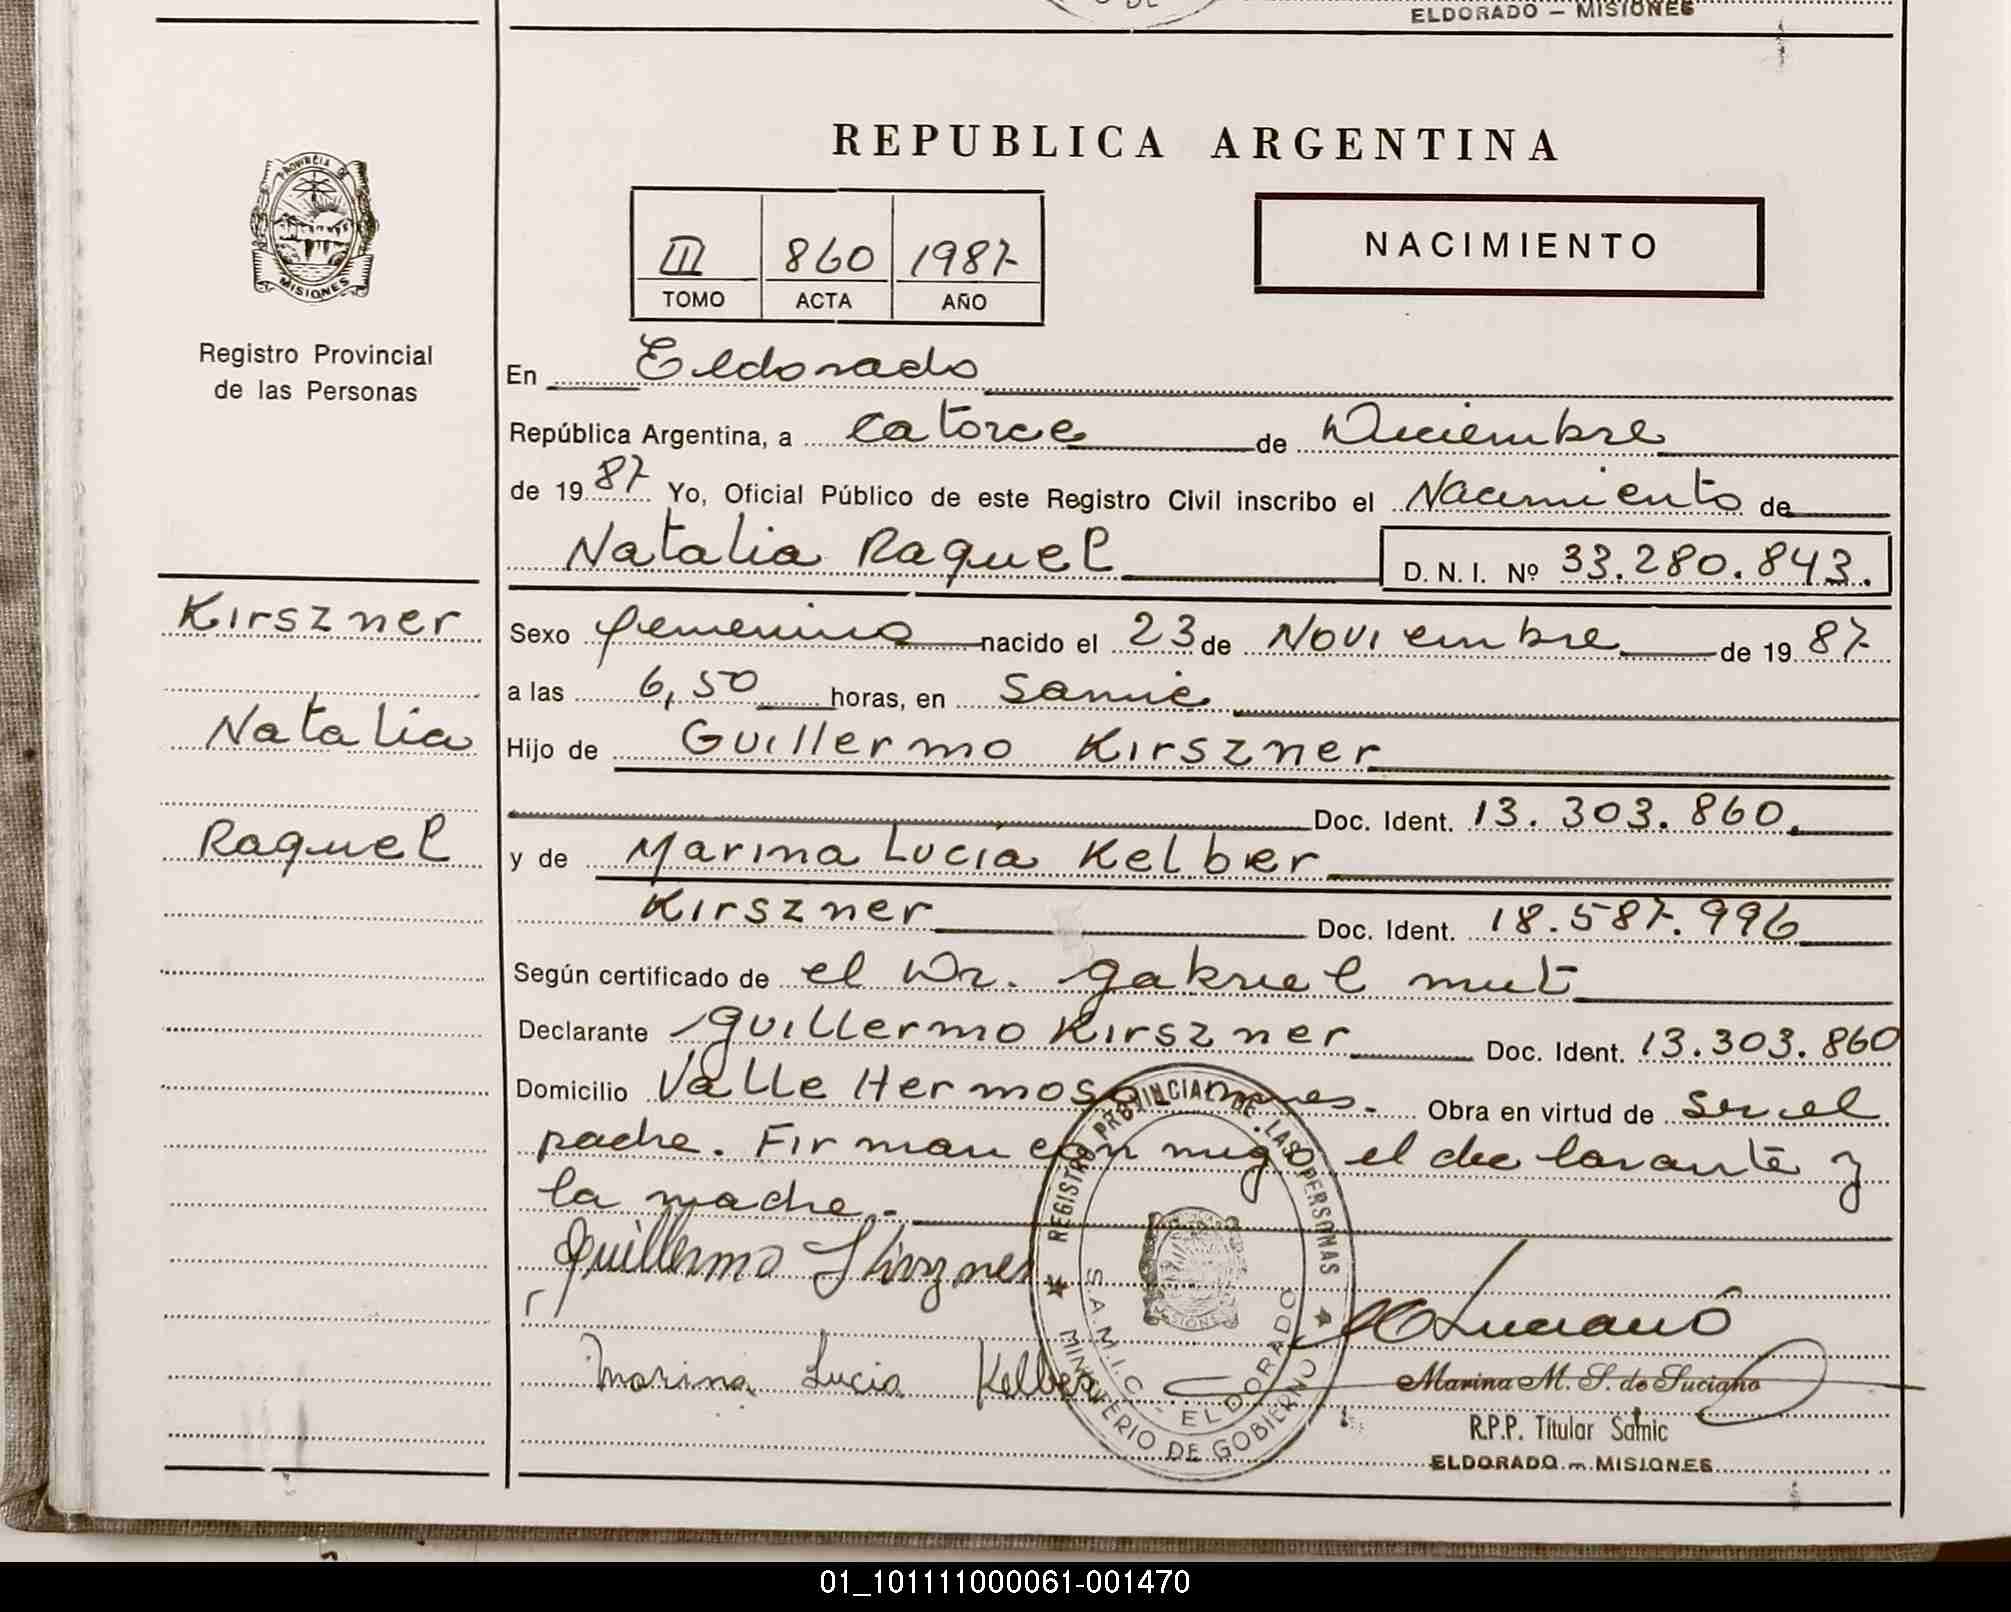 ELDORADO — MISIONES
REPUBLICA ARGENTINA
PROVINCIA DE
MISIONES
II 860 1987
TOMO ACTA AÑO
NACIMIENTO
Registro Provincial
de las Personas
En Eldorado
República Argentina, a catorce de Diciembre
de 1987 Yo, Oficial Público de este Registro Civil inscribo el Nacimiento de
Natalia Raquel D. N. I. Nº 33.280.843.
Kirszner
Natalia
Raquel
Sexo femenino nacido el 23 de Noviembre de 1987
a las 6,50 horas, en Samic
Hijo de Guillermo Kirszner
Doc. Ident. 13.303.860.
y de Marina Lucia Kelber
Kirszner Doc. Ident. 18.587.996
Según certificado de el Dr. Gabriel Mut
Declarante Guillermo Kirszner Doc. Ident. 13.303.860
Domicilio Valle Hermoso Mnes. Obra en virtud de ser el
padre. Firman con migo el declarante y
la madre.-
Guillermo Kirszner
Marina Lucia Kelber
REGISTRO PROVINCIAL DE LAS PERSONAS
S.A.M.I.C. - ELDORADO
MINISTERIO DE GOBIERNO
Luciano
Marina M. S. de Luciano
R.P.P. Titular Samic
ELDORADO - MISIONES
01_101111000061-001470